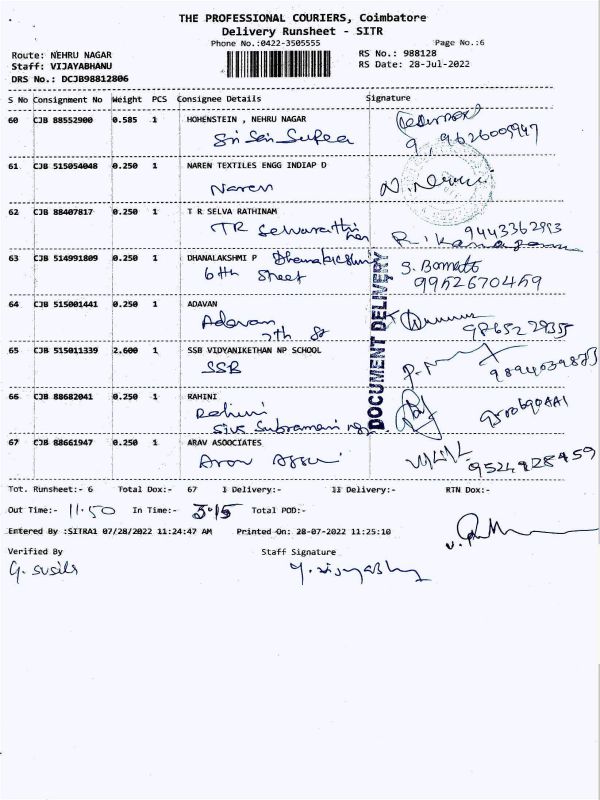 THE PROFESSIONAL COURIERS, Coimbatore
Delivery Runsheet - SITR
Phone No.:0422-3505555 Page No.:6
Route: NEHRU NAGAR RS No.: 988128
Staff: VIJAYABHANU RS Date: 28-Jul-2022
DRS No.: DCJB98812806
S No Consignment No Weight PCS Consignee Details Signature
60 CJB 88552900 0.585 1 HOHENSTEIN , NEHRU NAGAR
Sri Sai Supea
9,9626009947
61 CJB 515054048 0.250 1 NAREN TEXTILES ENGG INDIAP D
Naren
62 CJB 88407817 0.250 1 T R SELVA RATHINAM
TR Selvarathi 9443362993
63 CJB 514991809 0.250 1 DHANALAKSHMI P Dhanalakshmi
6th Street 9952670459
DOCUMENT DELIVERY
64 CJB 515001441 0.250 1 ADAVAN
Adavan
7th St 9865229355
65 CJB 515011339 2.600 1 SSB VIDYANIKETHAN NP SCHOOL
SSB 9894039873
66 CJB 88682041 0.250 1 RAHINI
Rahini
67 CJB 88661947 0.250 1 ARAV ASOOCIATES
Arav
9524928459
Tot. Runsheet:- 6 Total Dox:- 67 I Delivery:- II Delivery:- RTN Dox:-
Out Time:- 11.50 In Time:- 3.15 Total POD:-
Entered By :SITRA1 07/28/2022 11:24:47 AM Printed On: 28-07-2022 11:25:10
Verified By Staff Signature
G. Susila